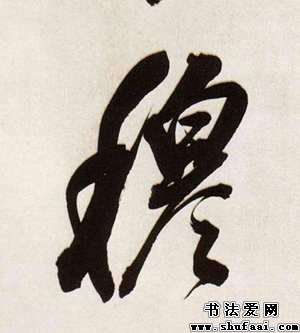 穆
书法爱网
www.shufaai.com